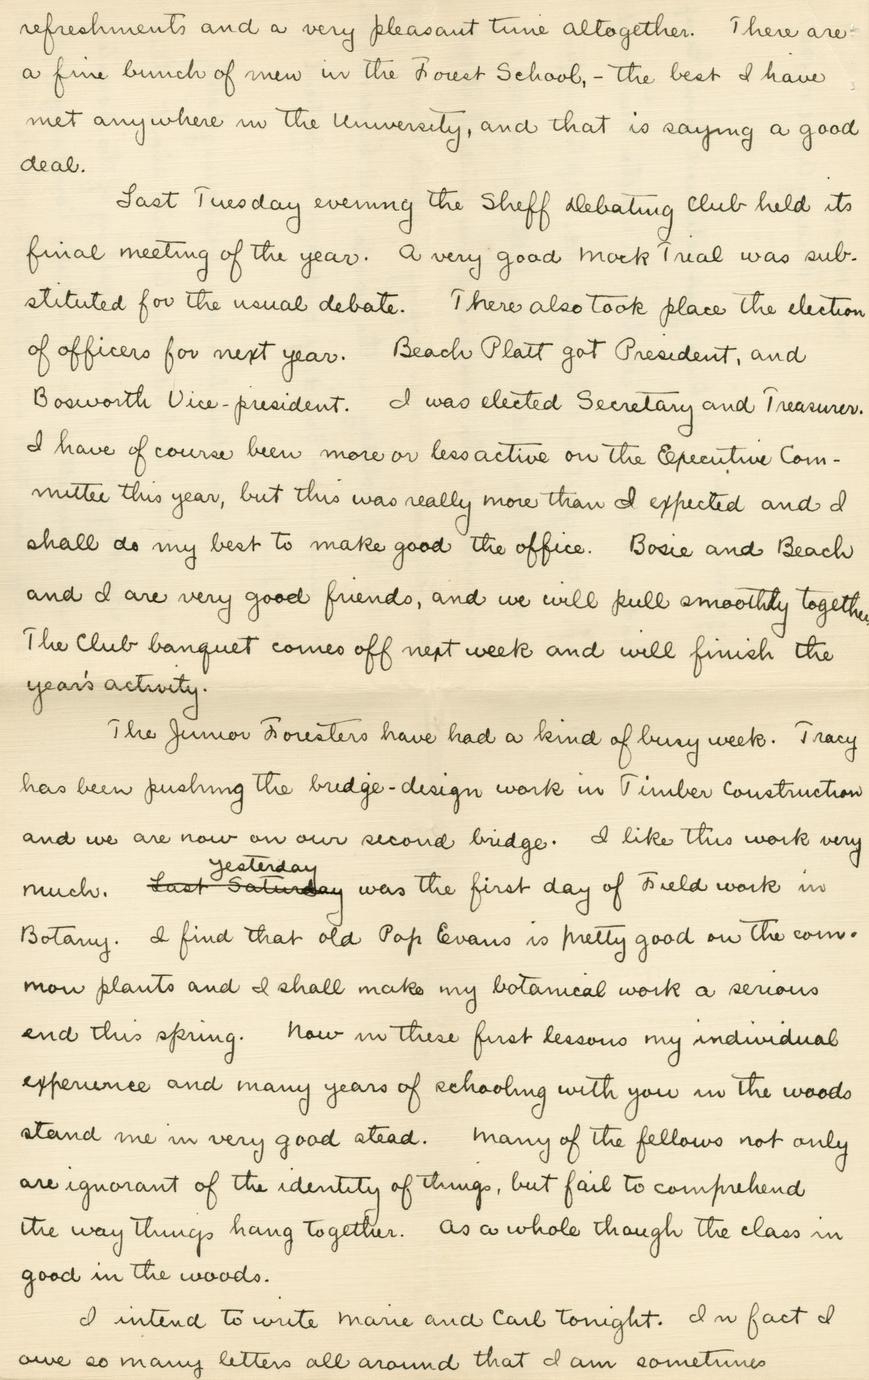 refreshments and a very pleasant time altogether. There are
a fine bunch of men in the Forest School,- the best I have
met anywhere in the University, and that is saying a good
deal.
Last Tuesday evening the Sheff Debating Club held its
final meeting of the year. A very good Mock Trial was sub-
stituted for the usual debate. There also took place the election
of officers for next year. Beach Platt got President, and
Bosworth Vice-president. I was elected Secretary and Treasurer.
I have of course been more or less active on the Executive Com-
mittee this year, but this was really more than I expected and I
shall do my best to make good the office. Bosie and Beach
and I are very good friends, and we will pull smoothly together.
The Club banquet comes off next week and will finish the
year's activity.
The Junior Foresters have had a kind of busy week. Tracy
has been pushing the bridge-design work in Timber Construction
and we are now on our second bridge. I like this work very
yesterday
much. Last Saturday was the first day of Field work in
Botany. I find that old Pop Evans is pretty good on the com-
mon plants and I shall make my botanical work a serious
end this spring. Now in these first lessons my individual
experience and many years of schooling with you in the woods
stand me in very good stead. Many of the fellows not only
are ignorant of the identity of things, but fail to comprehend
the way things hang together. As a whole though the class in
good in the woods.
I intend to write Marie and Carl tonight. In fact I
owe so many letters all around that I am sometimes